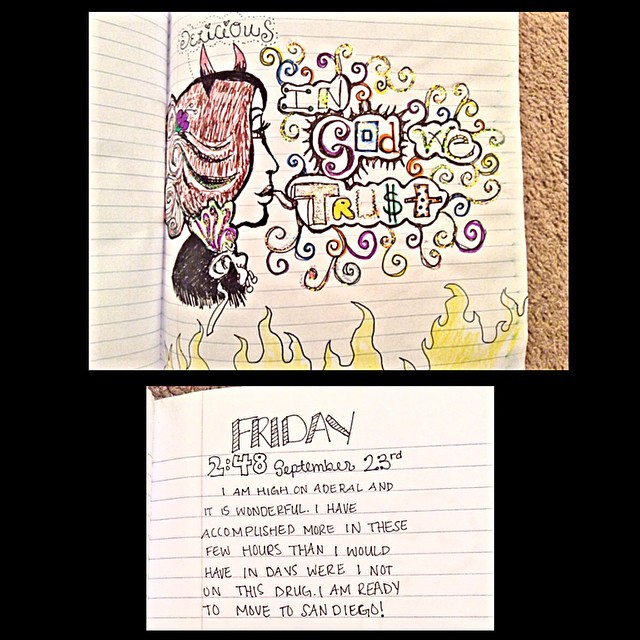 DELiCiOUS
IN
GOD WE
TRU$T
FRIDAY
2:48 September 23rd
I AM HIGH ON ADERAL AND
IT IS WONDERFUL. I HAVE
ACCOMPLISHED MORE IN THESE
FEW HOURS THAN I WOULD
HAVE IN DAYS WERE I NOT
ON THIS DRUG. I AM READY
TO MOVE TO SAN DIEGO!